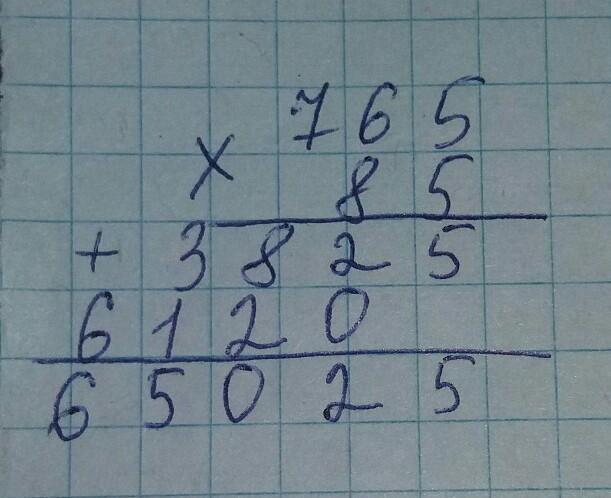 765
× 85
+ 3825
6120
65025